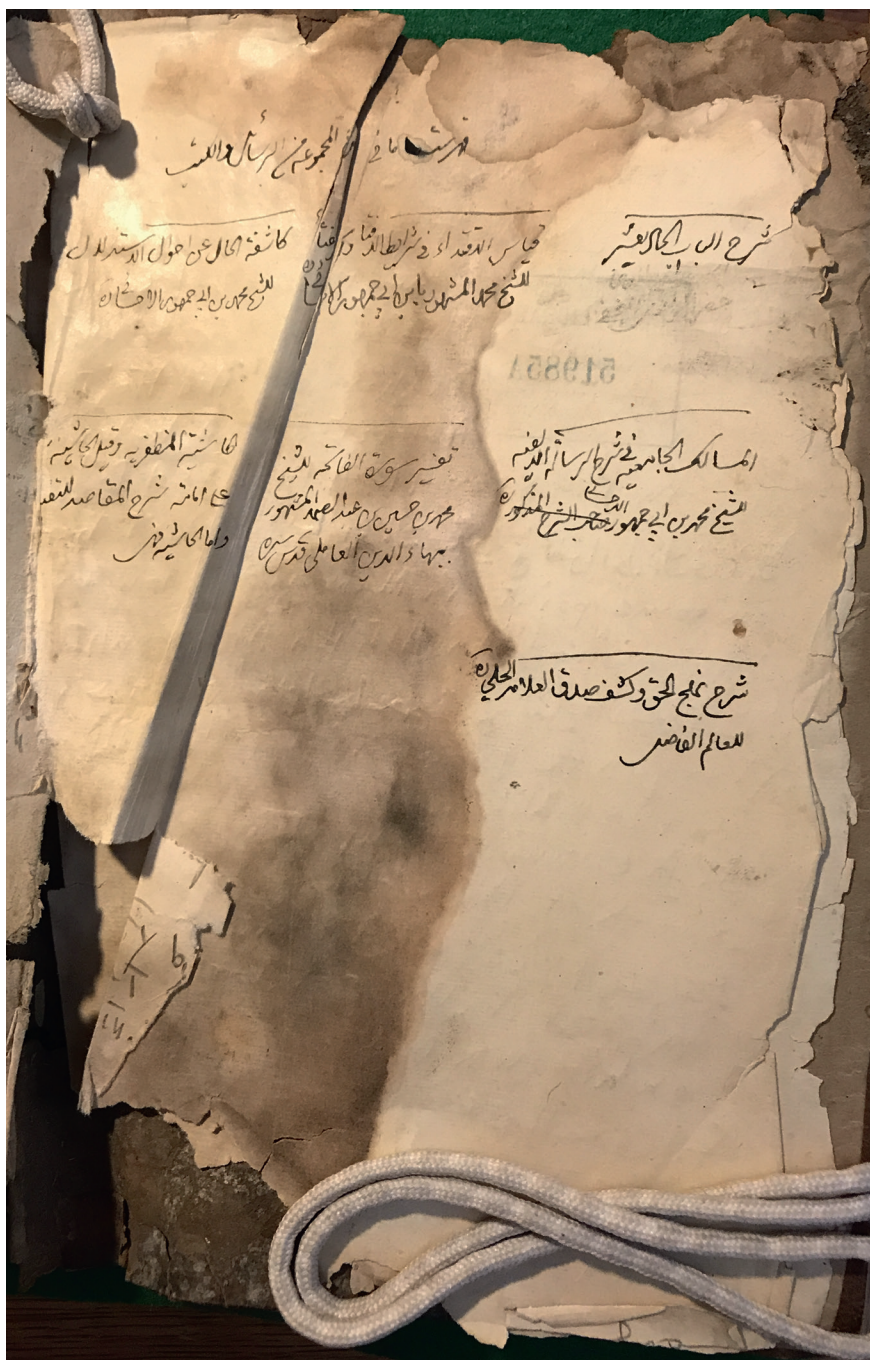 فهرست ما في المجموعة من الرسائل والكتب
شرح الباب الحاديعشر
قياس الاقتداء في شرايط الافتا
للشيخ محمد المشهور بابن ابي جمهور
كاشفة الحال عن احوال الاستدلال
للشيخ محمد بن ابي جمهور الاحسائي ره
51985A
المسالك الجامعية في شرح الرسالة الالفية
للشيخ محمد بن ابي جمهور صاحب الشرح المذكور
تفسير سورة الفاتحة للشيخ
محمد بن حسين بن عبد الصمد المشهور
ببهاء الدين العاملي قدس سره
حاشية المظفريه وقيل الحاشية
شرح المقاصد
واما الحاشية فهى
شرح نهج الحق وكشف صدق العلامه الحلي ره
للعالم الفاضل